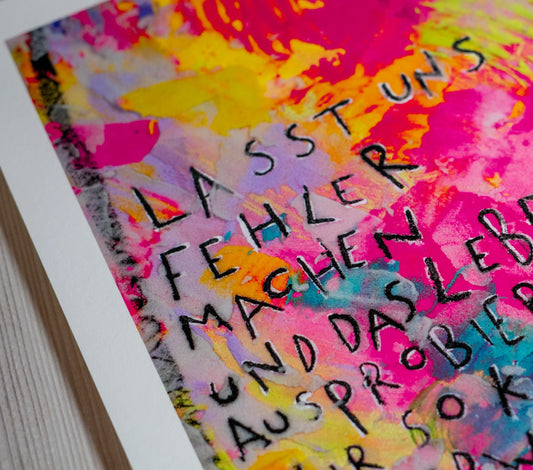 LASST UNS
FEHLER
MACHEN
UND DAS LEBE
AUSPROBIER